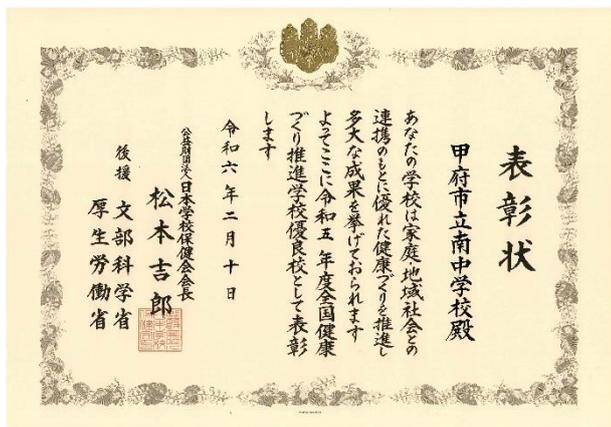 表彰状
甲府市立南中学校殿
あなたの学校は家庭・地域社会との
連携のもとに優れた健康づくりを推進し
多大な成果を挙げておられます
よってここに令和五年度全国健康
づくり推進学校優良校として表彰
します
令和六年二月十日
公益財団法人日本学校保健会会長
松本吉郎
後援 文部科学省
厚生労働省